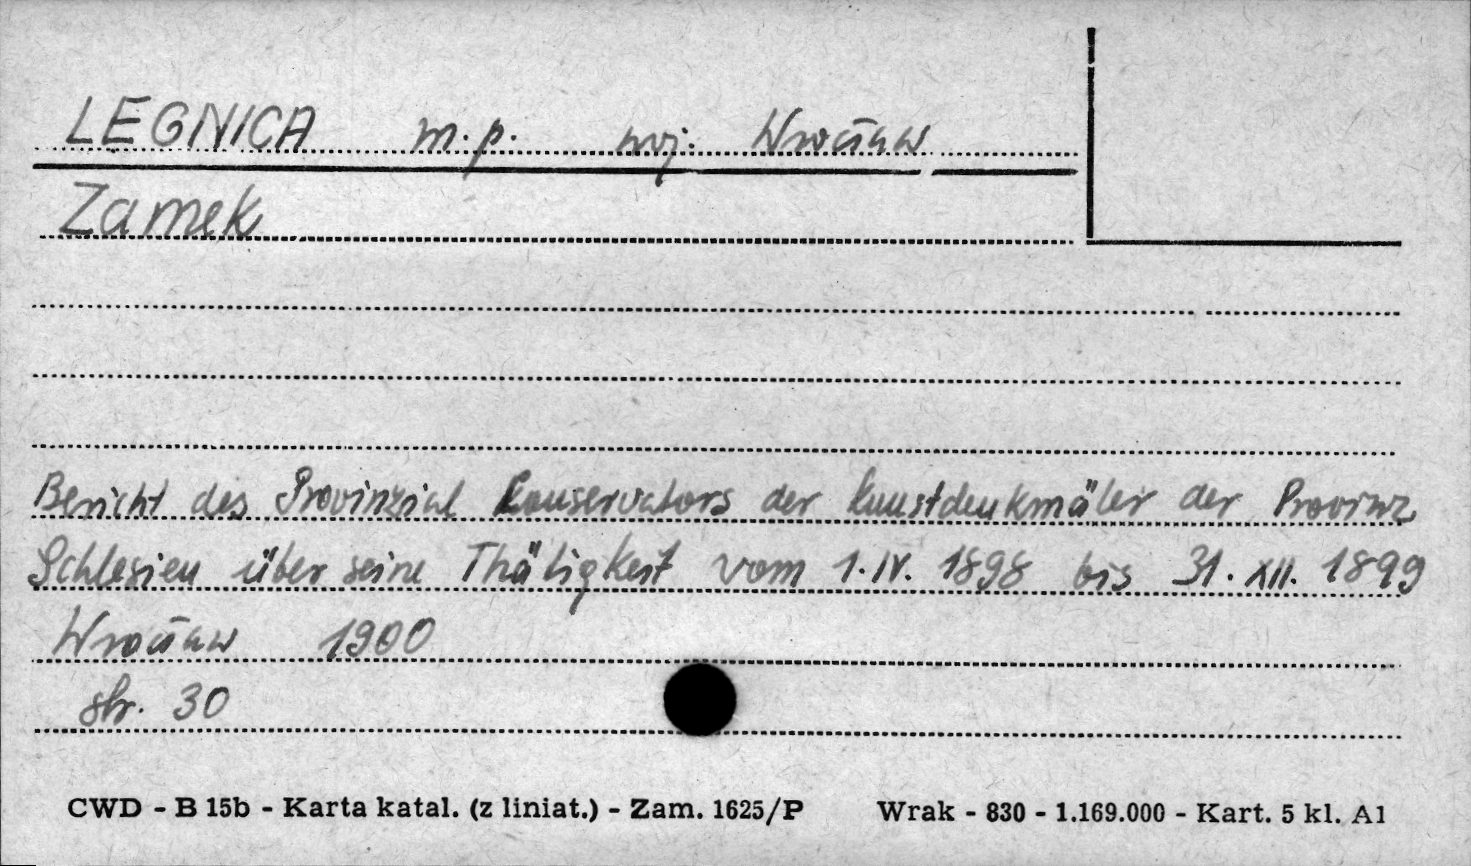 LEGNICA m.p. woj. Wrocław
Zamek
Bericht des Provinzial Konservators der Kunstdenkmäler der Provinz
Schlesien über seine Thätigkeit vom 1.IV. 1898 bis 31.XII. 1899
Wrocław 1900
str. 30
CWD - B 15b - Karta katal. (z liniat.) - Zam. 1625/P Wrak - 830 - 1.169.000 - Kart. 5 kl. A1